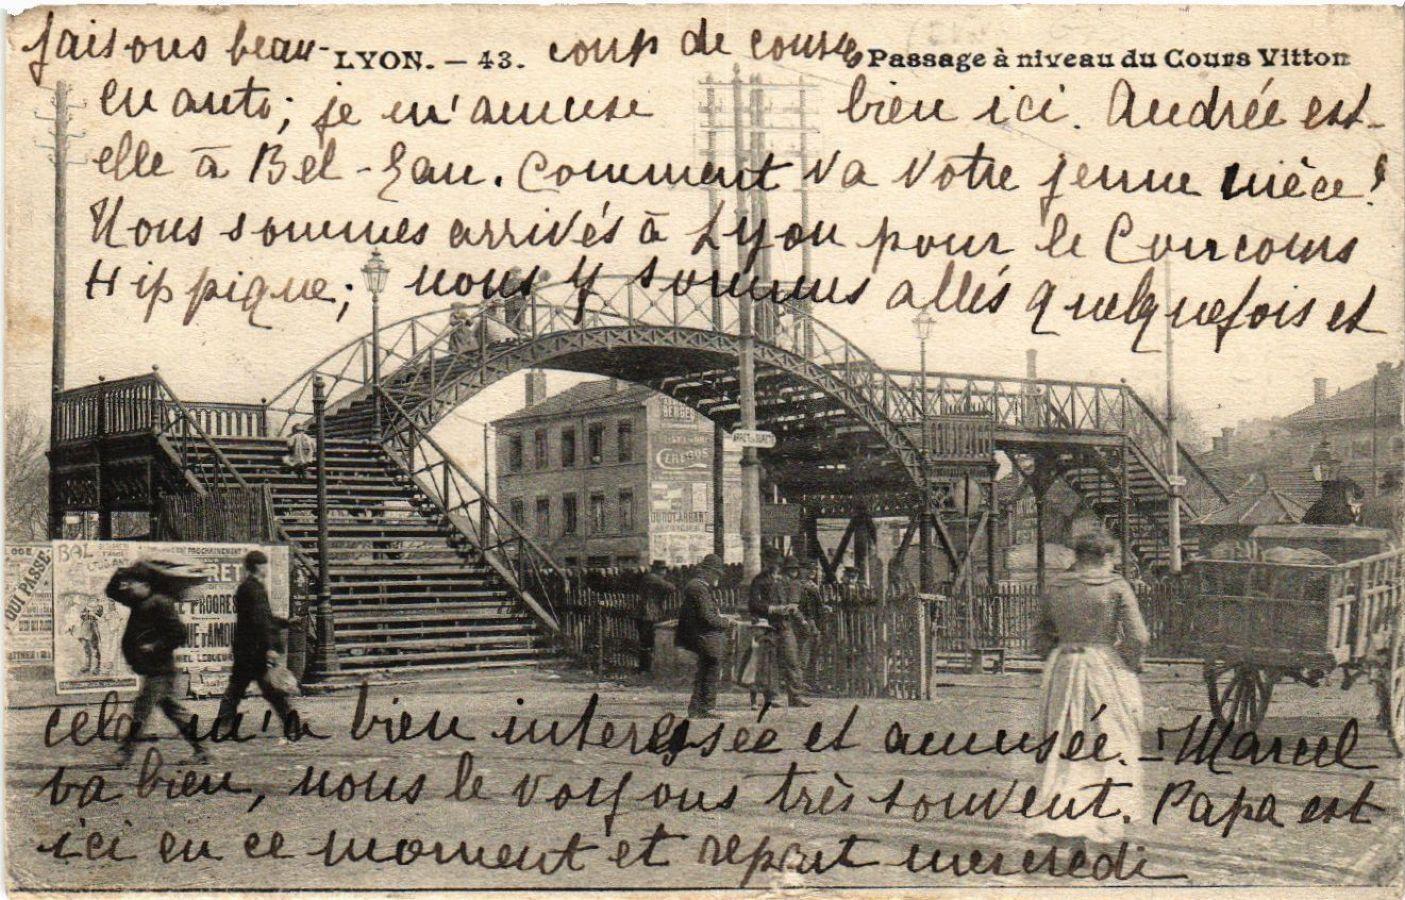 faisons beau- LYON. – 43. coup de courses Passage à niveau du Cours Vitton
en auto; je m'amuse bien ici. Andrée est-
elle à Bel-Eau. Comment va votre jeune nièce?
Nous sommes arrivés à Lyon pour le Concours
Hippique; nous y sommes allés quelquefois et
ARRET
CEREBOS
QUI PASSE
BAL
PROCHAINEMENT
PROGRES
D'AMOUR
cela m'a bien interessée et amusée. – Marcel
va bien, nous le voyons très souvent. Papa est
ici en ce moment et repart mercredi